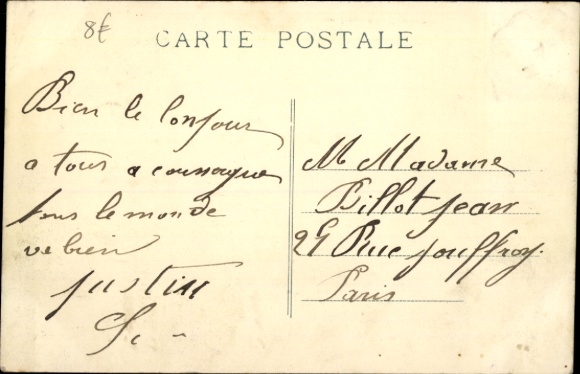 8€
CARTE POSTALE
Bien le bonjour
a tous a
tous le monde
va bien
Justin
M Madame
Billot Jean
Rue Jouffroy.
Paris